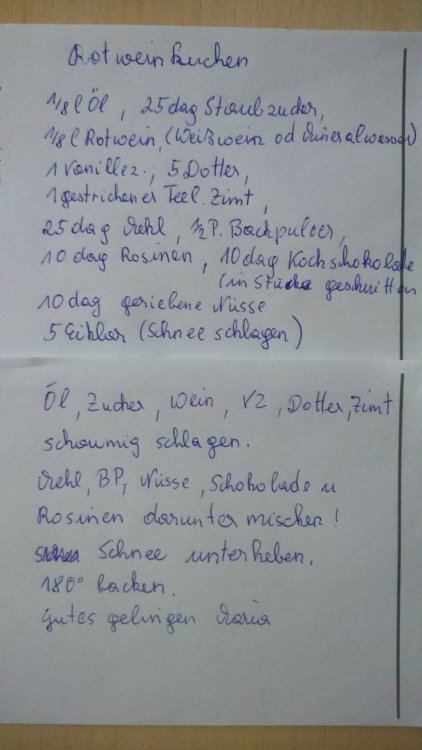 Rotweinkuchen
1/8 l Öl, 25 dag Staubzucker,
1/8 l Rotwein, (Weißwein od Mineralwasser)
1 Vanillez., 5 Dotter,
1 gestrichener Teel. Zimt,
25 dag Mehl, 1/2 P. Backpulver,
10 dag Rosinen, 10 dag Kochschokolade
(in Stücke geschnitten
10 dag geriebene Nüsse
5 Eiklar (Schnee schlagen)
Öl, Zucker, Wein, VZ, Dotter, Zimt
schaumig schlagen.
Mehl, BP, Nüsse, Schokolade u
Rosinen darunter mischen!
Schnee unterheben.
180° backen.
Gutes gelingen Maria